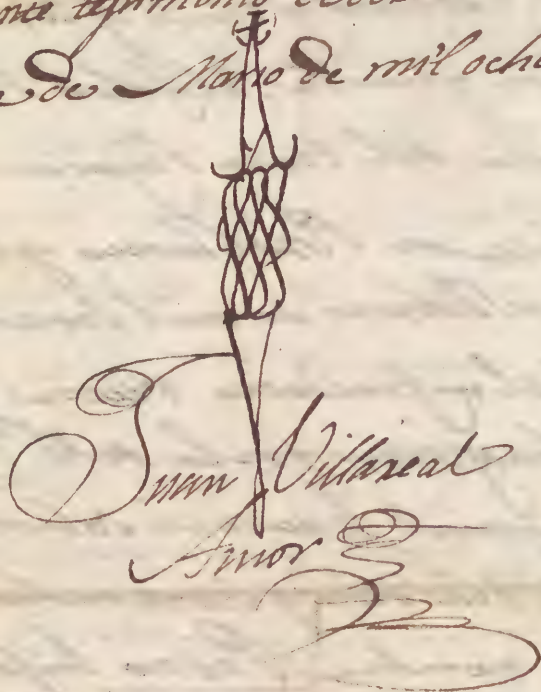 testimonio
de Marzo de mil ocho
Juan Villareal
Amor